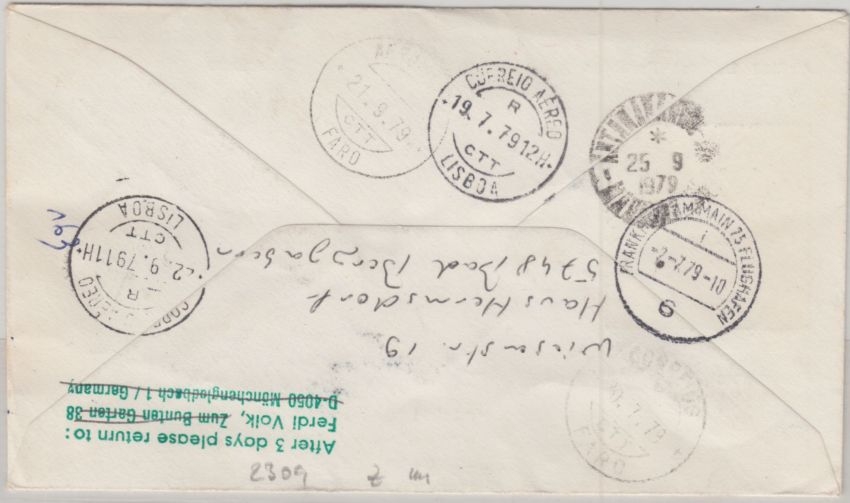 AERO
21.9.79
CTT
FARO
CORREIO AEREO
R
19.7.79 12H
CTT
LISBOA
25 9
1979
FRANKFURT AM MAIN 75 FLUGHAFEN
i
-2-7.79-10
9
LISBOA
CTT
-2.9.79 11H
R
CORREIO AEREO
Wiesenstr. 19
Hans Hermsdorf
5748 Bad
CORREIO
7.79
CTT
FARO
After 3 days please return to:
Ferdi Volk, Zum Bunten Garten 38
D-4050 Mönchengladbach 1 / Germany
2309